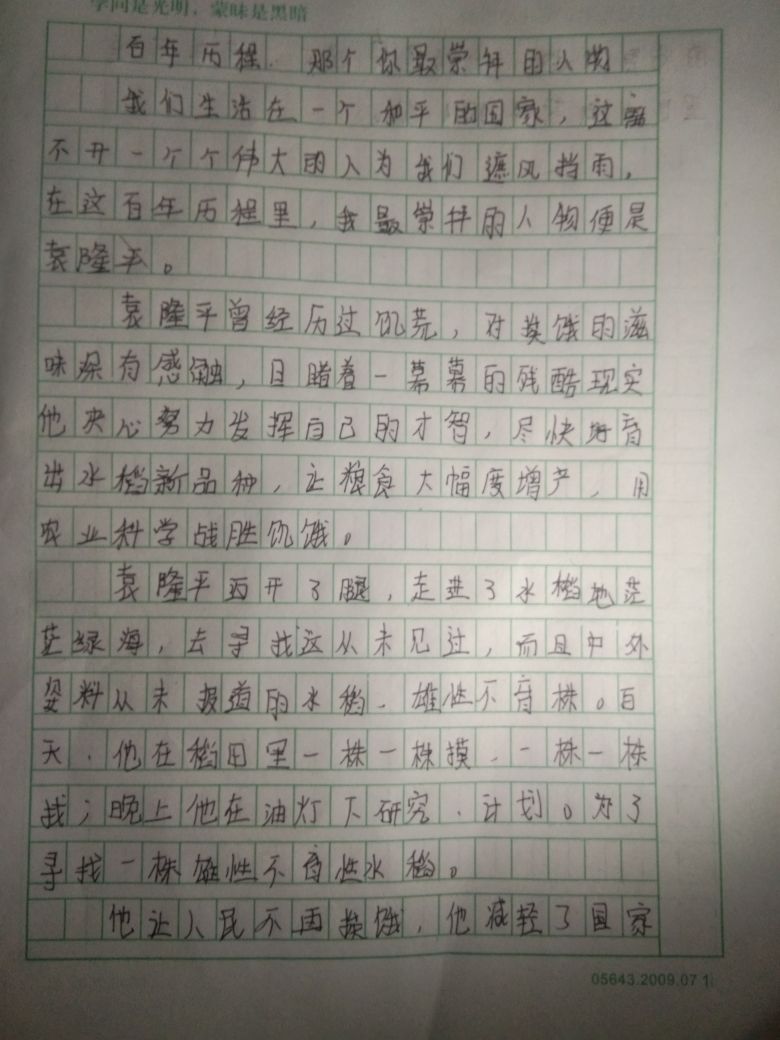 学问是光明,蒙昧是黑暗
百年历程、那个你最崇拜的人物
我们生活在一个和平的国家,这离
不开一个个伟大的人为我们遮风挡雨,
在这百年历程里,我最崇拜的人物便是
袁隆平。
袁隆平曾经历过饥荒,对挨饿的滋
味深有感触,目睹着一幕幕的残酷现实
他决心努力发挥自己的才智,尽快培育
出水稻新品种,让粮食大幅度增产,用
农业科学战胜饥饿。
袁隆平迈开了腿,走进了水稻地茫
茫绿海,去寻找这从未见过,而且中外
资料从未报道的水稻、雄性不育株。白
天、他在稻田里一株一株摸、一株一株
找;晚上他在油灯下研究、计划。为了
寻找一株雄性不育性水稻。
他让人民不再挨饿,他减轻了国家
05643.2009.07 1